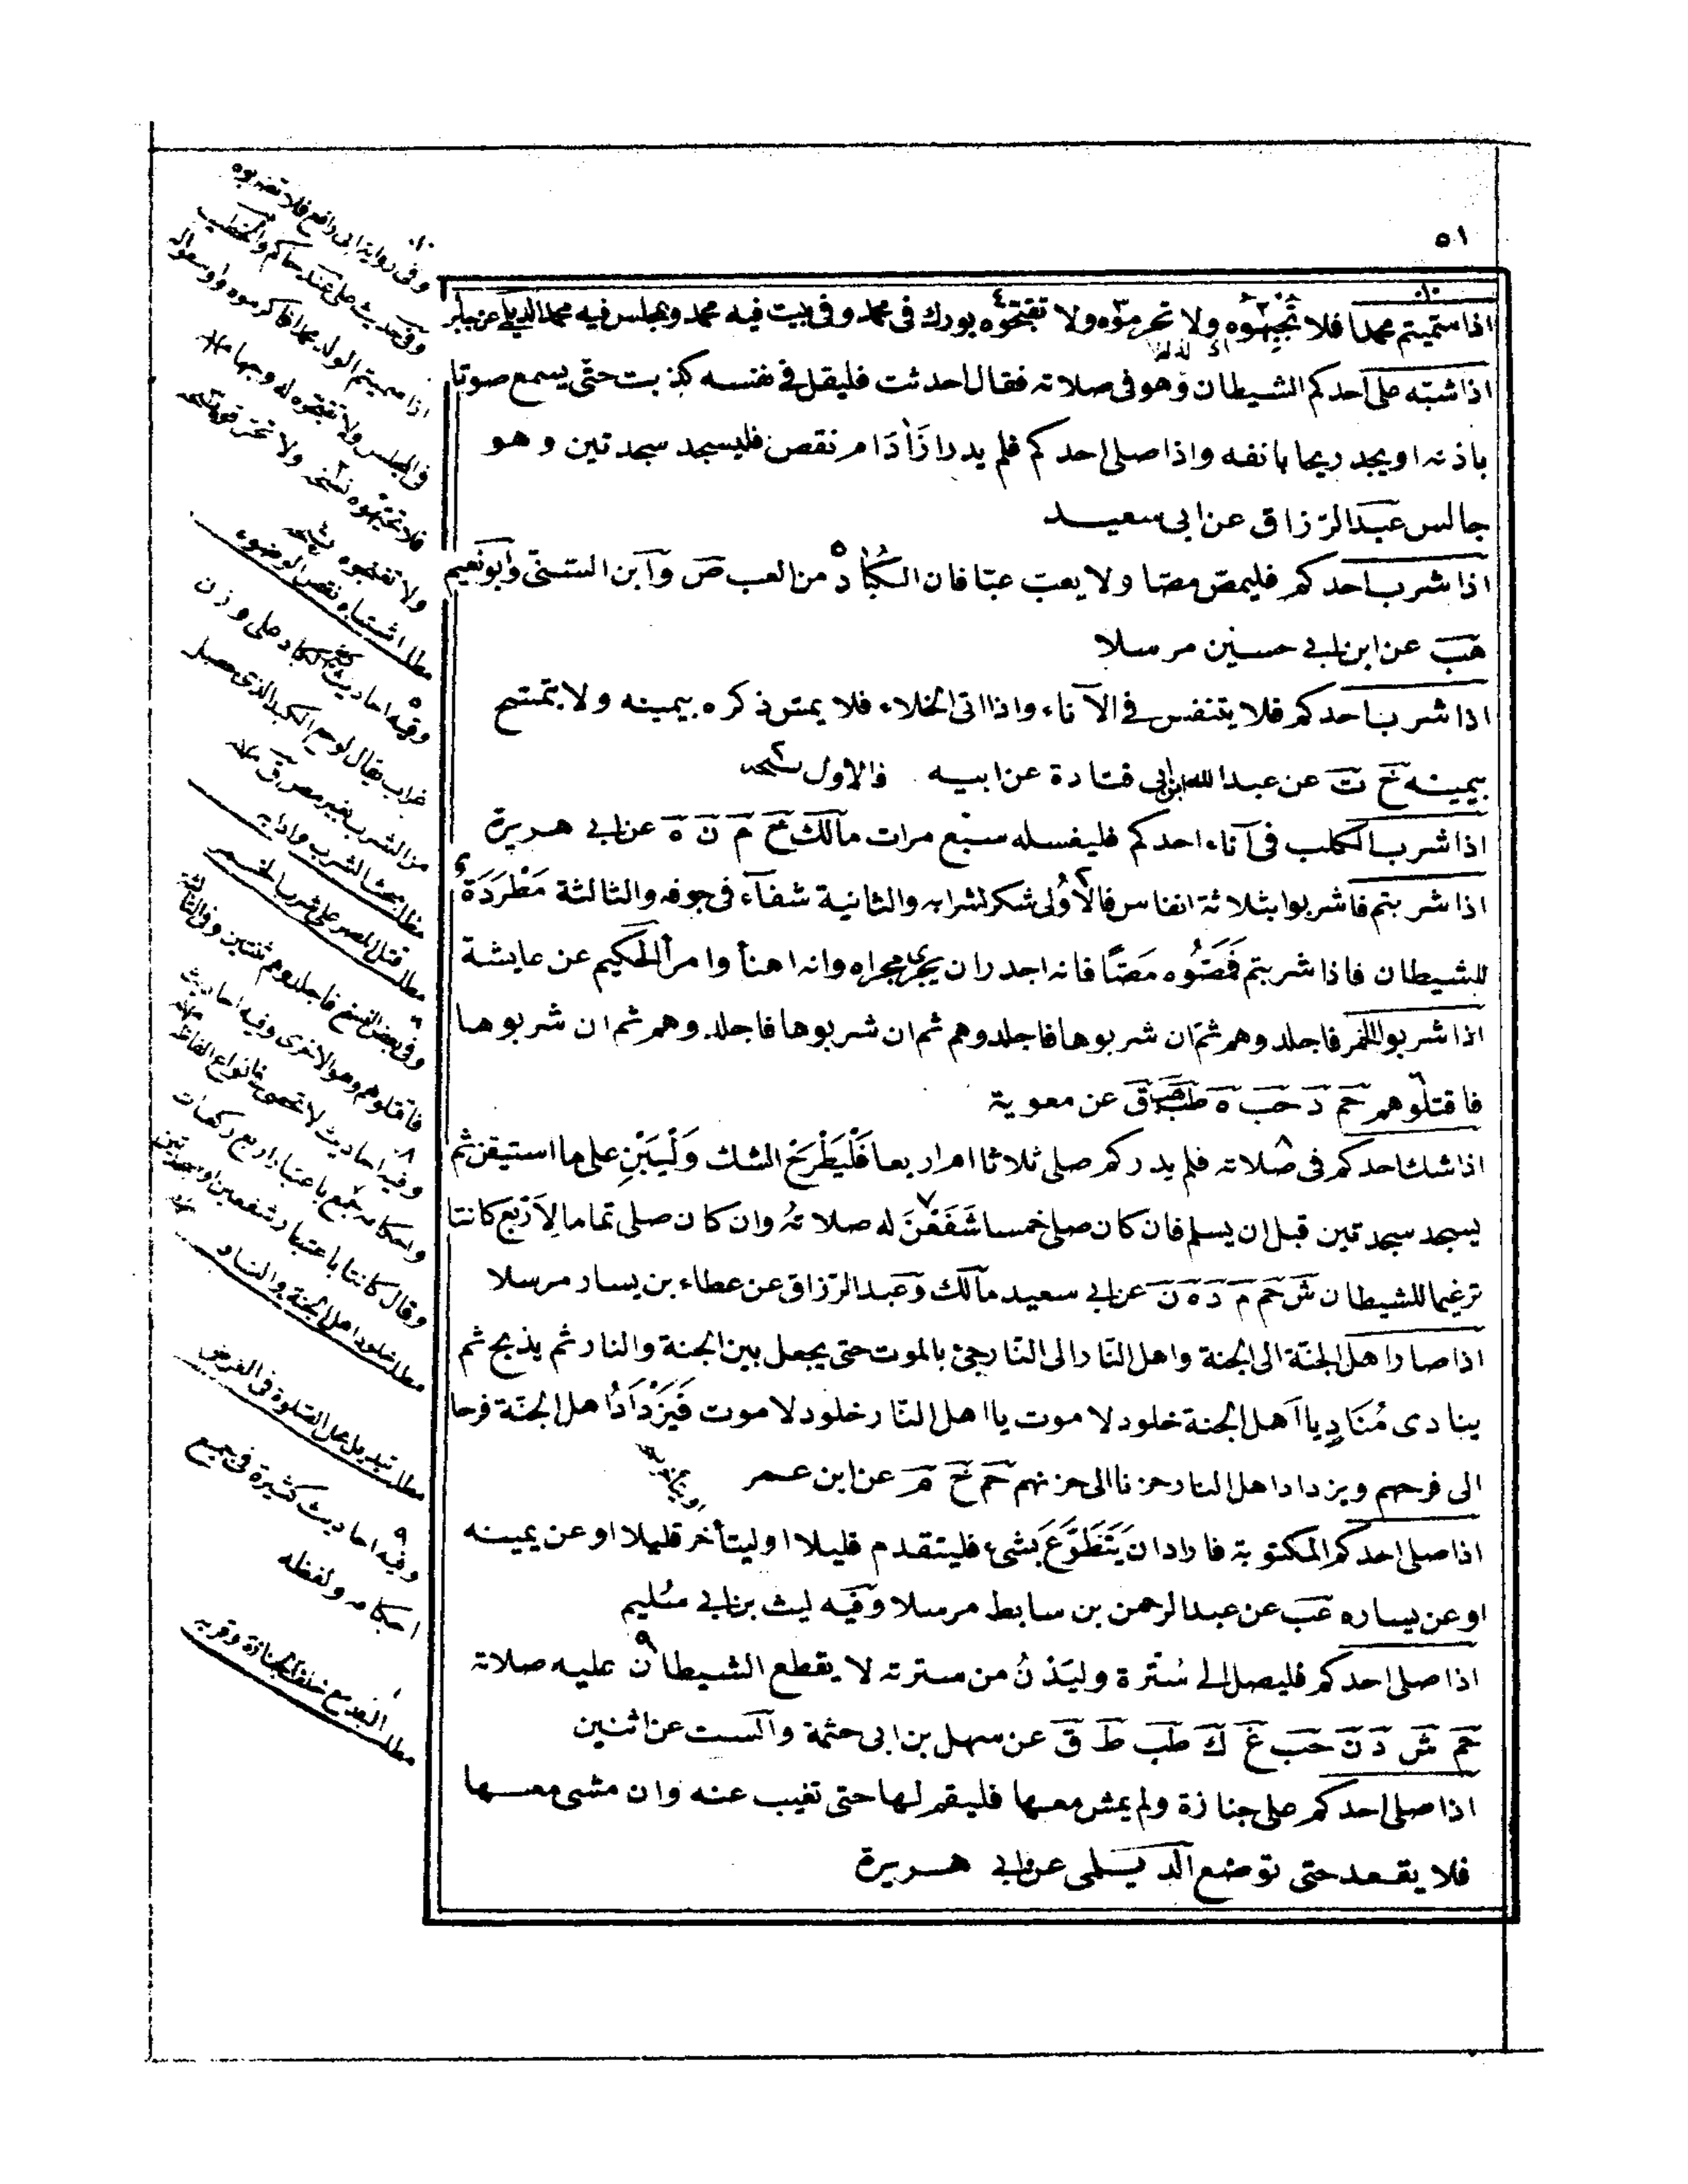 ٥١
اذا سميتم محمدا فلا تجبهوه ولا تحرموه ولا تقبحوه بورك فى محمد وفى بيت فيه محمد ومجلس فيه محمد الديلى عن جابر
اذا شبّه على احدكم الشيطان وهو فى صلاته فقال احدثت فليقل فى نفسه كذبت حتّى يسمع صوتا
باذنه او يجد ريحا بانفه واذا صلى احدكم فلم يدر ازَادَ ام نقص فليسجد سجدتين وهو
جالس عبد الرّزاق عن ابى سعيد
اذا شرب احدكم فليمصّ مصّا ولا يعب عبّا فان الكُبَاد من العب صَ وآبن السنىّ وأبو نعيم
هَبَ عن ابن ابى حسين مرسلا
اذا شرب احدكم فلا يتنفس فى الآناء واذا اتى الخلاء فلا يمس ذكره بيمينه ولا يتمسح
بيمينه خَ تَ عن عبد الله بن ابى قتادة عن ابيه فالاول نسخه
اذا شرب الكلب فى آناء احدكم فليغسله سبْع مرات مآلك خَ مَ نَ هَ عن ابى هريرة
اذا شربتم فاشربوا بثلاثة انفاس فالأُولى شكر لشرابه والثانية شفآء فى جوفه والثالثة مَطْرَدَة
للشيطان فاذا شربتم فَمَصُّوه مَصًّا فانه اجدر ان يجرى مجراه وانه اهنأ وامرأ الحكيم عن عايشة
اذا شربوا الخمر فاجلدوهم ثمّ ان شربوها فاجلدوهم ثم ان شربوها فاجلدوهم ثم ان شربوها
فاقتلوهم حَم دَ حَب هَ طَب قَ عن معوية
اذا شك احدكم فى صلاته فلم يدر كم صلى ثلاثا ام اربعا فَلْيَطْرَحْ الشك وَلْيَبْنِ على ما استيقن ثم
يسجد سجدتين قبل ان يسلم فان كان صلى خمسا شَفَعْنَ له صلاتهُ وان كان صلى تماما لِاَرْبع كانتا
ترغيما للشيطان شَ حَم مَ دَ هَ نَ عن ابى سعيد مآلك وَعبد الرّزاق عن عطاء بن يسار مرسلا
اذا صار اهل الجنّة الى الجنة واهل النّار الى النّار جئ بالموت حتى يجعل بين الجنة والنار ثم يذبح ثم
ينادى مُنَادٍ يا آهل الجنة خلود لا موت يا اهل النّار خلود لا موت فَيَزْدَادُ اهل الجنّة فرحا
الى فرحهم ويزداد اهل النار حزنا الى حزنهم حَم خَ مَ عن ابن عمر
اذا صلى احدكم المكتوبة فاراد ان يَتَطَوَّعَ بشىء فليتقدم قليلا او ليتأخر قليلا او عن يمينه
او عن يساره عَب عن عبد الرحمن بن سابط مرسلا وَفيه ليث بن ابى سُليم
اذا صلى احدكم فليصل الى سُتْرة وليَدْنُ من سترته لا يقطع الشيطان عليه صلاته
حَم شَ دَ نَ حَب غَ كَ طَب طَ قَ عن سهل بن ابى حثمة وآلست عن اثنين
اذا صلى احدكم على جنازة ولم يمش معها فليقم لها حتى تغيب عنه وان مشى معها
فلا يقعد حتى توضع الديلمى عن ابى هريرة
وفى رواية ابى رافع فلا تضربوه
وفى حديث على عند حاكم والخطيب
اذا سميتم الولد محمدا فاكرموه واوسعوا له
فى المجلس ولا تقبحوا له وجها
مطلب اشتباه نقص الوضوء
وفيه احاديث الكباد على وزن
غراب يقال لوجع الكبد الذى حصل
من الشرب بغير مص
مطلب بحث الشرب وادابه
مطلب قتل المصر على شرب الخمر
وفى بعض النسخ فاجلدوهم ثنتين وفى الثالثة
فاقتلوهم وهو الاخرى وفيه احاديث
وفيه احاديث لا تحصى فانواع الفاظه
واحكامه جمع باعتبار اربع ركعات
وقال كانتا باعتبار شفعين او سجدتين
مطلب خلود اهل الجنة والنار
مطلب تبديل محل الصلوة فى الفرض
وفيه احاديث كثيرة فى جميع
احكامه ولفظه